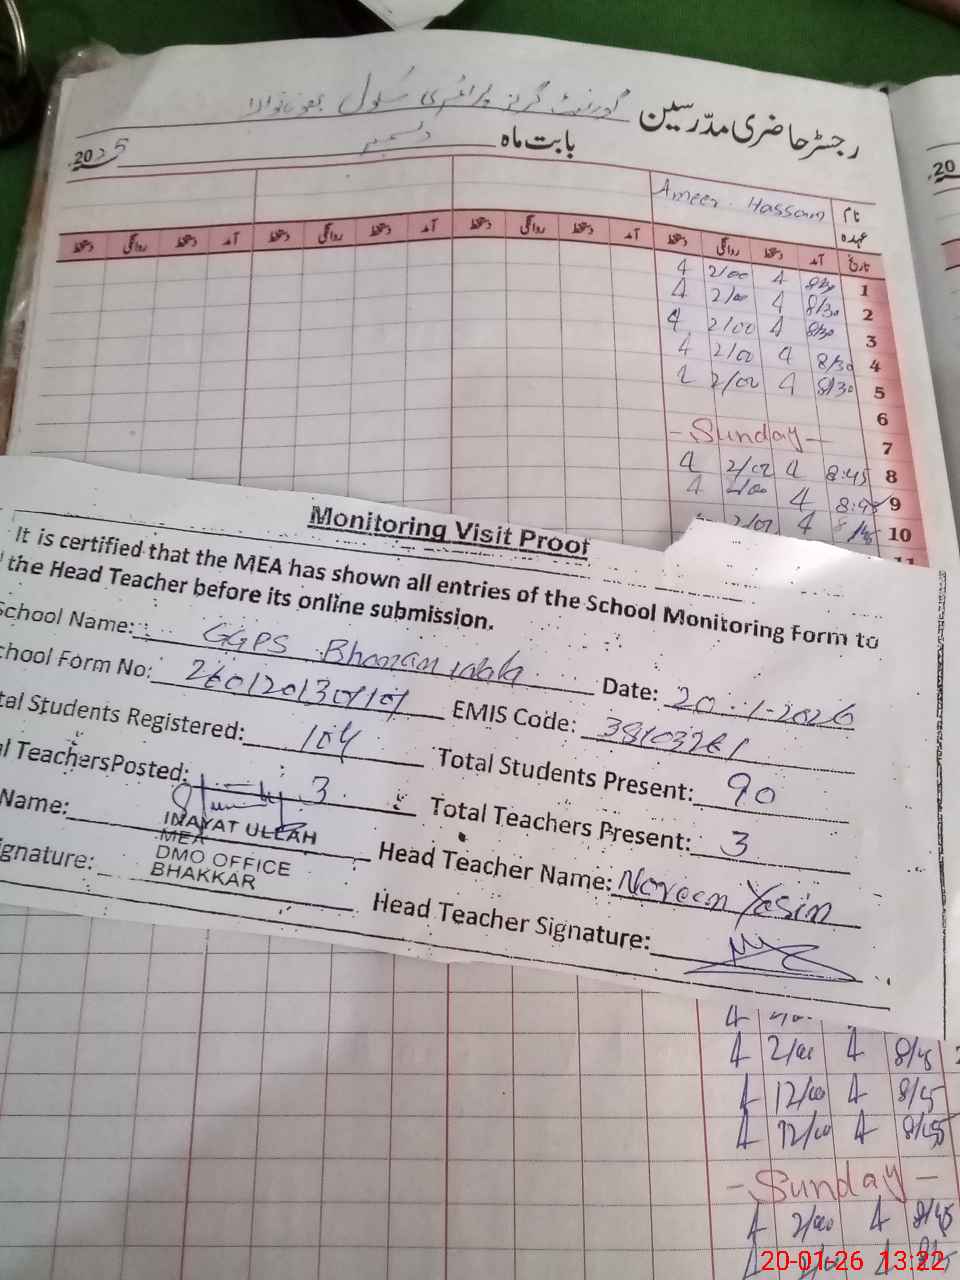 رجسٹر حاضری مدّرسین گورنمنٹ گرلز پرائمری سکول
بابت ماہ دسمبر 2025
20
نام Ameer Hassam
عہدہ
تاریخ آمد دستخط روانگی دستخط آمد دستخط روانگی دستخط آمد دستخط روانگی دستخط آمد دستخط روانگی دستخط
1 8/30 A 2/00 A
2 8/30 A 2/00 A
3 8/30 A 2/00 A
4 8/30 A 2/00 A
5 8/30 A 2/00 A
6
7 - Sunday -
8 8:45 A 2/00 A
9 8:45 A 2/00 A
10 8/45 A 2/00
11
Monitoring Visit Proof
It is certified that the MEA has shown all entries of the School Monitoring Form to
the Head Teacher before its online submission.
School Name: GGPS Date: 20-1-2026
School Form No: EMIS Code: 38103261
Total Students Registered: 104 Total Students Present: 90
Total TeachersPosted: 3 Total Teachers Present: 3
Name: Head Teacher Name: Noreen Yasin
INAYAT ULLAH
MEA
DMO OFFICE
BHAKKAR
Signature: Head Teacher Signature:
A 2/00 A 8/45
A 12/00 A 8/45
A 12/00 A 8/45
- Sunday -
A 2/00 A 8/45
20-01-26 13:22